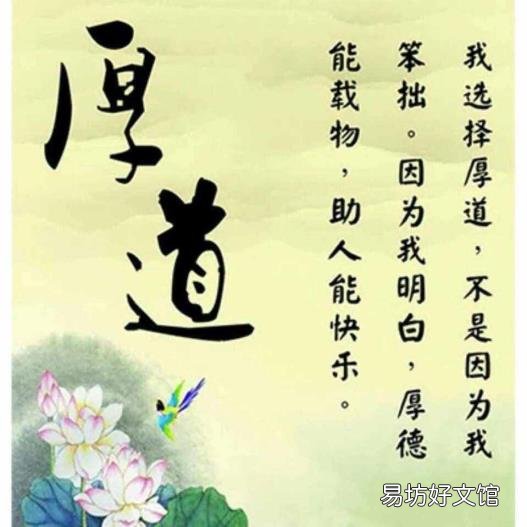 厚道
我选择厚道，不是因为我
笨拙。因为我明白，厚德
能载物，助人能快乐。
易坊好文馆